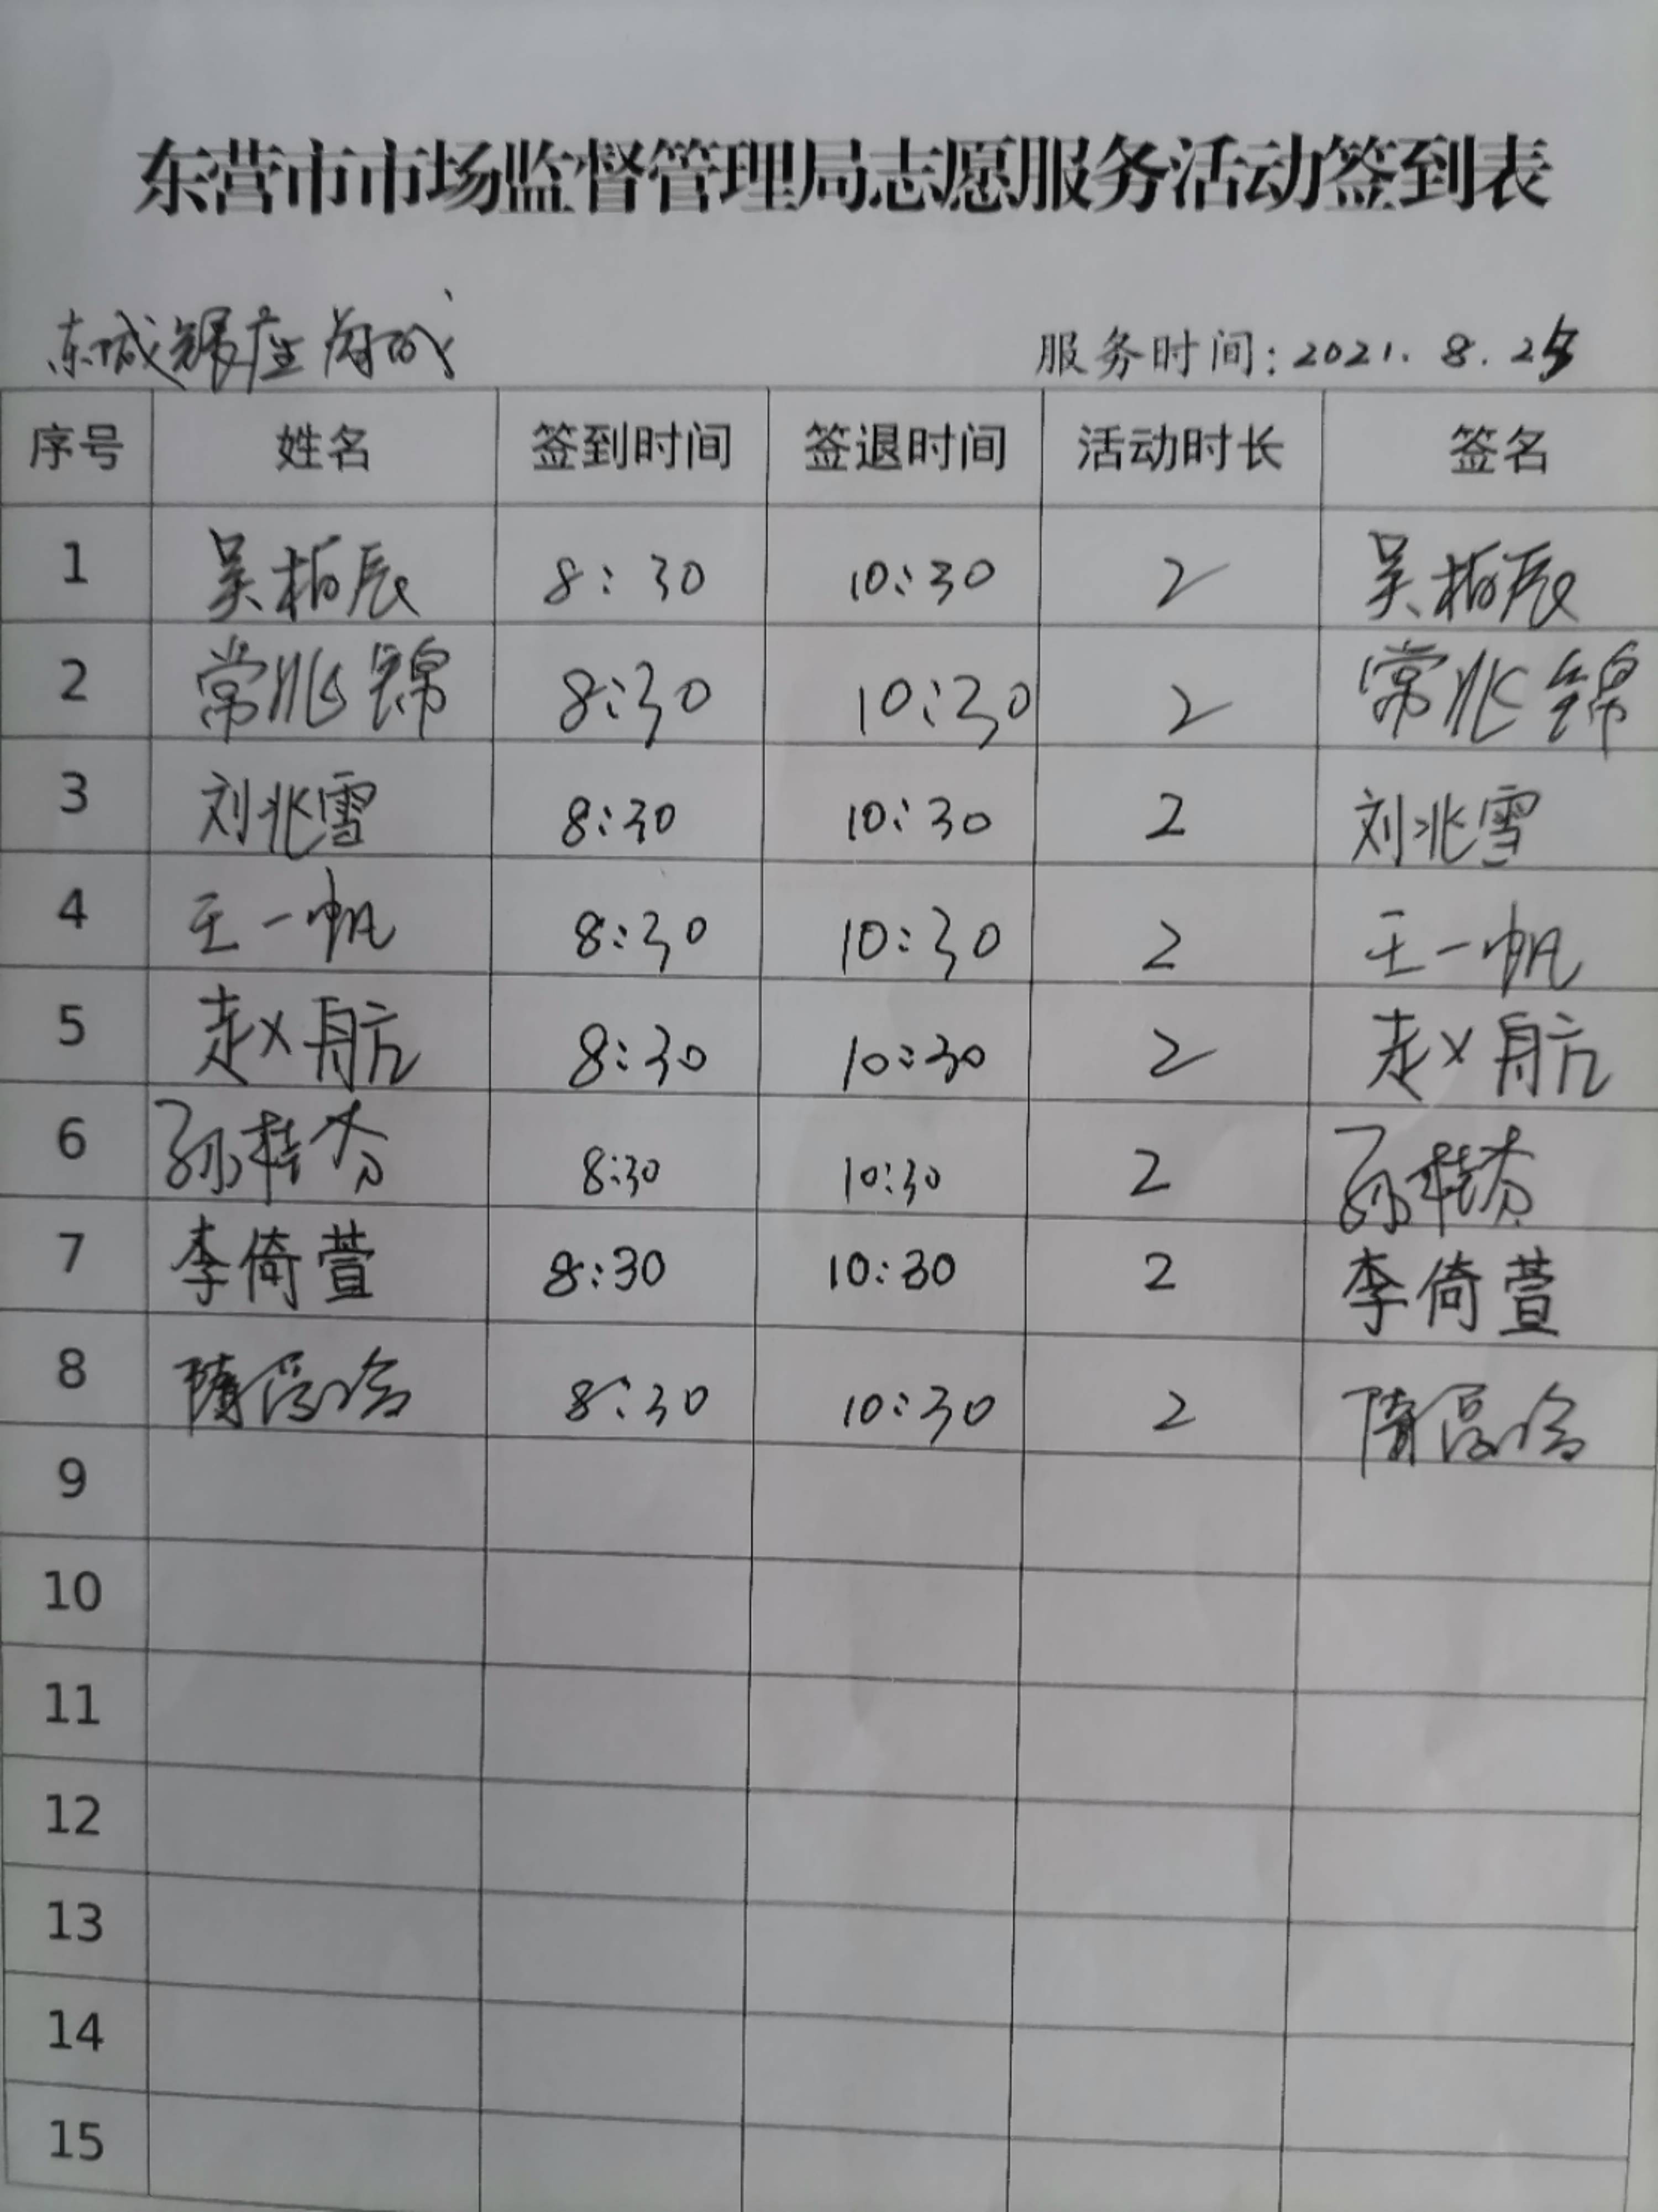 东营市市场监督管理局志愿服务活动签到表
东城银座商城 服务时间:2021.8.25
序号 姓名 签到时间 签退时间 活动时长 签名
1 吴柏辰 8:30 10:30 2 吴柏辰
2 常兆锦 8:30 10:30 2 常兆锦
3 刘兆雪 8:30 10:30 2 刘兆雪
4 王一帆 8:30 10:30 2 王一帆
5 赵航 8:30 10:30 2 赵航
6 孙桂芬 8:30 10:30 2 孙桂芬
7 李倚萱 8:30 10:30 2 李倚萱
8 隋 8:30 10:30 2 隋
9
10
11
12
13
14
15